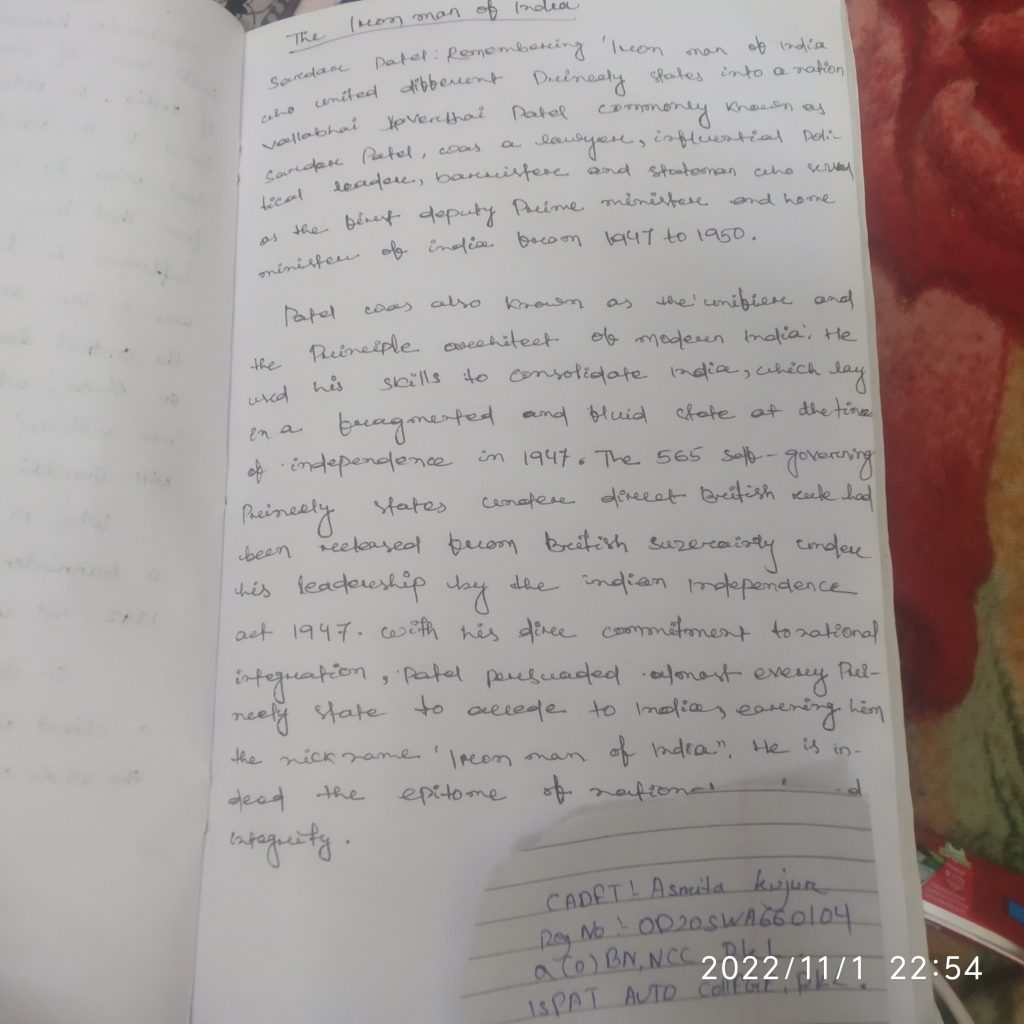 The Iron man of India
Sardar Patel: Remembering 'Iron man of India
who united different Princely states into a nation
vallabhai Patel commonly known as
Sardar Patel, was a lawyer, influential Poli-
tical leader, barrister and statesman who served
as the first deputy Prime minister and home
minister of india from 1947 to 1950.
Patel was also known as the 'unifier and
the Principle architect of modern India. He
used his skills to consolidate india, which lay
in a fragmented and fluid state at the time
of independence in 1947. The 565 self-governing
Princely states under direct British rule had
been released from British suzerainty under
his leadership by the indian Independence
act 1947. with his commitment to national
integration, Patel persuaded almost every Prin-
cely state to accede to India, earning him
the nick name 'Iron man of India". He is in-
deed the epitome of national
integrity.
CADET: Asmita Kujur
Reg No :- OD20SWA660104
(O) BN, NCC
ISPAT AUTO College,
2022/11/1 22:54